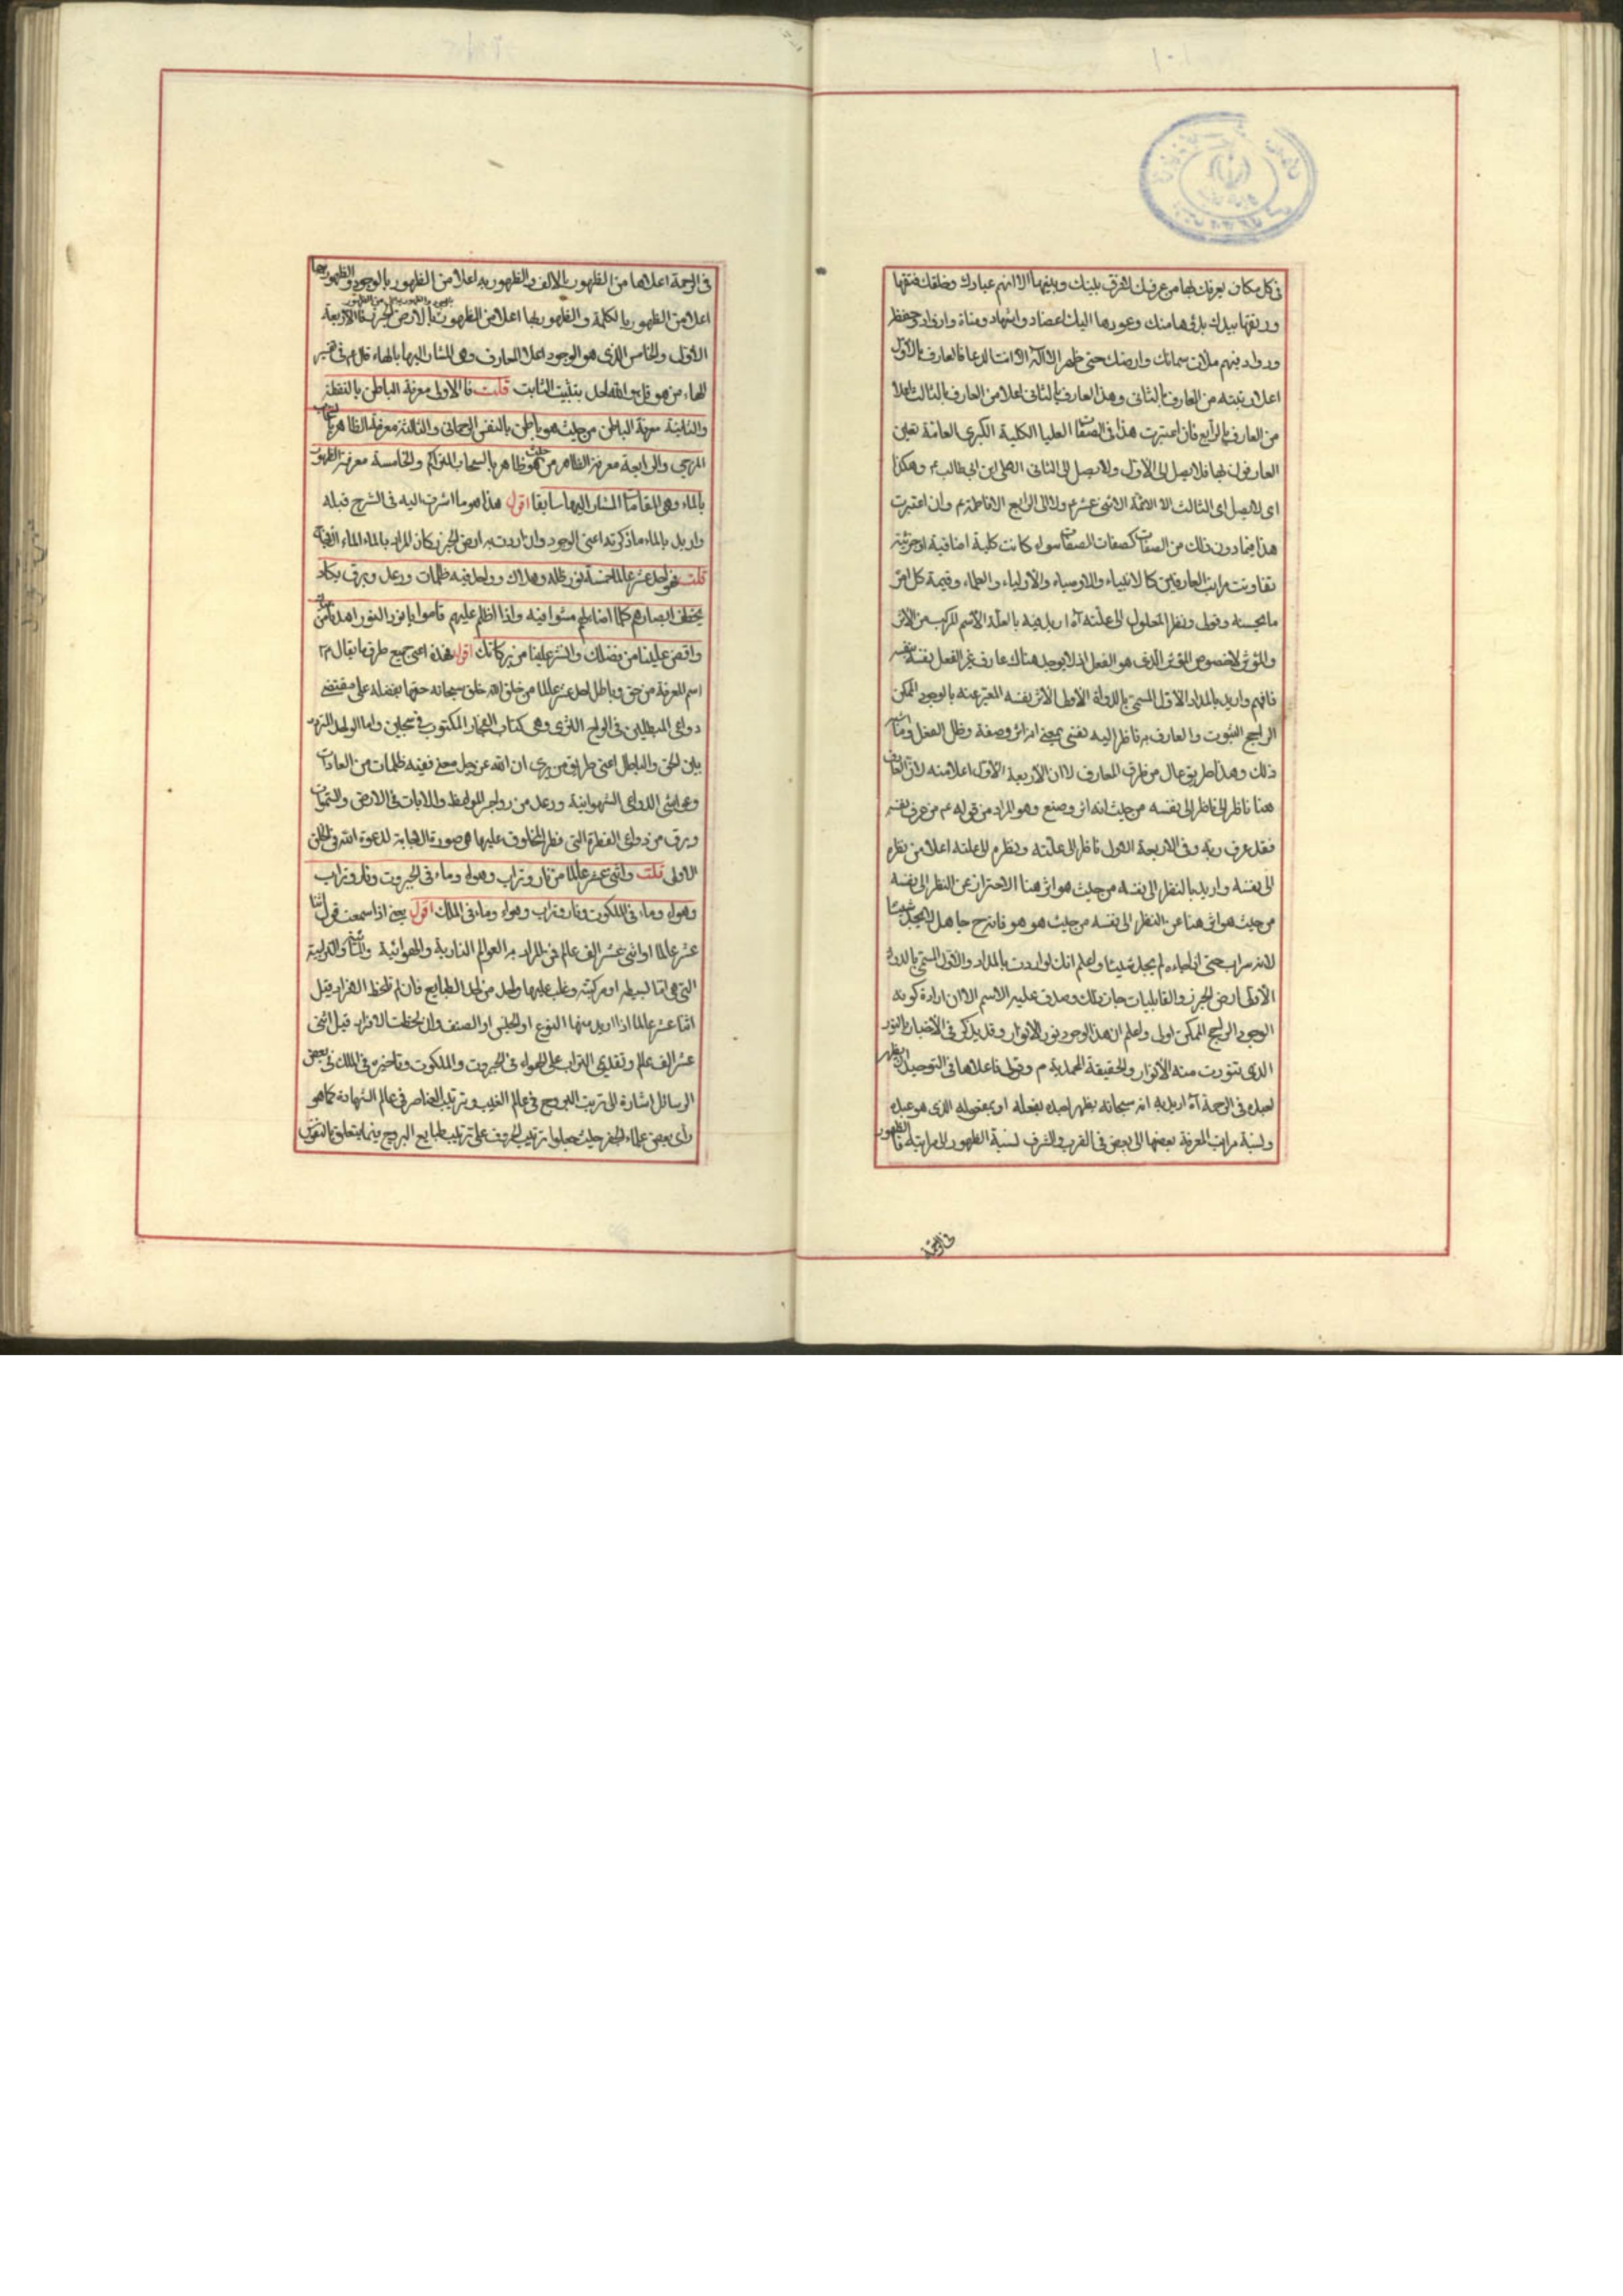 فى كل مكان يعرفك بها من عرفك لا فرق بينك وبينها الا انهم عبادك وخلقك فتقها
ورتقها بيدك بدؤها منك وعودها اليك اعضاد واشهاد ومناة واذواد وحفظة
ورواد فبهم ملأت سمائك وارضك حتى ظهر ان لا اله الا انت الدعا فالعارف بالاول
اعلا رتبته من العارف بالثانى وهذا العارف بالثانى اعلا من العارف بالثالث اعلا
من العارف بالرابع فان اعتبرت هذا فى الصفات العليا الكلية الكبرى العامة تعين
العارفون بها فلا يصل الى الاول ولا يصل الى الثانى الا على ابن ابى طالب ع وهكذا
اى لا يصل الى الثالث الا الائمة الاثنى عشر ع ولا الى الرابع الا فاطمة ع وان اعتبرت
هذا فيما دون ذلك من الصفات كصفات الصفات سواء كانت كلية اضافية او جزئية
تفاوتت مراتب العارفين كالانبياء والاوصياء والاولياء والعلماء وقيمة كل امرء
ما يحسنه وقولى ونظر المعلول الى علته آه اريد فيه بالعلة الاسم المركب من الاثر
والمؤثر لا خصوص المؤثر الذى هو الفعل اذ لا يوجد هناك عارف غير الفعل نفسه بنفسه
فافهم واريد بالمداد الاول المسمى بالدواة الاولى الاثر نفسه المعبر عنه بالوجود الممكن
الراجح الثبوت والعارف به ناظر اليه نفسى بمعنى انه اثر وصفة وظل الفعل وما اشبه
ذلك وهذا طريق عال من طرق المعارف الا ان الاربعة الاول اعلا منه لان العارف
هنا ناظر الى ناظر الى نفسه من حيث انه اثر وصنع وهو المراد من قوله ع من عرف نفسه
فقد عرف ربه وفى الاربعة الاول ناظر الى علته ونظره الى علته اعلا من نظره
الى نفسه واريد بالنظر الى نفسه من حيث هو اثر هنا الاحتراز عن النظر الى نفسه
من حيث هو اثر هنا عن النظر الى نفسه من حيث هو هو فانه ح جاهل لا يجد شيئا
لانه سراب حتى اذا جاءه لم يجده شيئا واعلم انك لو اردت بالمداد والاول المسمى بالدواة
الاولى ارض الجرز والقابليات جاز ذلك وصدق عليه الاسم الا ان ارادة كونه
الوجود الراجح الممكن اولى واعلم ان هذا الوجود نور الانوار وقد يذكر فى الاخبار بالنور
الذى تنورت منه الانوار والحقيقة المحمدية ص وقولى فاعلاها فى التوحيد ان يظهر
لعبده فى الرحمة آه اريد به انه سبحانه يظهر لعبده بفعله او بمفعوله الذى هو عبده
ونسبة مراتب المعرفة بعضها الى بعض فى القرب والشرف لنسبة الظهور الى مراتبه فالظهور
فى الرحمة
فى الرحمة اعلاها من الظهور بالالف والظهور به اعلا من الظهور بالوجود والظهور بها
اعلا من الظهور بالكلمة والظهور بها اعلا من الظهور بالارض الجرز فالاربعة
الاول والخامس الذى هو الوجود اعلا المعارف وهى المشار اليها بالهاء قال ع فى تفسير
الهاء من هو قل هو الله احد بتثبيت الثابت قلت فالاولى معرفة الباطن بالنقطة
والثانية معرفة الباطن من حيث هو باطن بالنفس الرحمانى والثالثة معرفة الظاهر بالسحاب
المزجى والرابعة معرفة الظاهر من حيث هو ظاهر بالسحاب المتراكم والخامسة معرفة الظهور
بالماء وهى المقامات المشار اليها سابقا اقول هذا هو ما اشرت اليه فى الشرح قبله
واريد بالماء ما ذكرته اعنى الوجود وان اردت به ارض الجرز كان المراد بالماء الماء
قلت فهى احد عشر عالما خمسة نور ظله وهلاك وواحد فيه ظلمات ورعد وبرق يكاد
يخطف ابصارهم كلما اضاء لهم مشوا فيه واذا اظلم عليهم قاموا يا نور النور اهدنا من
وافض علينا من فضلك وانشر علينا من بركاتك اقول هذه اعنى جميع طرق ما يقال له
اسم المعرفة من حق وباطل احد عشر عالما من خلق الله خلق سبحانه حقها بفضله على مقتضى
دواعى المبطلين فى الواح الثرى وهى كتاب الفجار المكتوب فى سجين واما الواحد المتردد
بين الحق والباطل اعنى طريق من يرى ان الله عز وجل معنى ففيه ظلمات من العادات
وغواشى الدواعى الشهوانية ورعد من زواجر المواعظ والايات فى الارض والسموات
وبرق من دواعى الفطرة التى فطر المخلوق عليها هى صورة الاجابة لدعوة الله فى الخلق
الاولى قلت واثنى عشر عالما من نار وتراب وهواء وماء فى الجبروت ونار وتراب
وهواء وماء فى الملكوت ونار وتراب وهواء وماء فى الملك اقول يعنى اذا سمعت قول اثنا
عشر عالما او اثنى عشر الف عالم فالمراد به العوالم النارية والهوائية والمائية والترابية
التى هى اما بسيطة او مركبة وغلب عليها واحد من احد الطبايع فان لم تلحظ الافراد قيل
اثنا عشر عالما اذا اريد منها النوع او الجنس او الصنف وان لحظت الافراد قيل اثنى
عشر الف عالم وتقديم التراب على الهواء فى الجبروت والملكوت وتاخيره فى الملك فى بعض
الرسائل اشارة الى ترتيب البروج فى عالم الغيب وترتيب العناصر فى عالم الشهادة كما هو
رأى بعض علماء الجفر حيث جعلوا ترتيب الحروف على ترتيب طبايع البروج فيما يتعلق بالنفوس